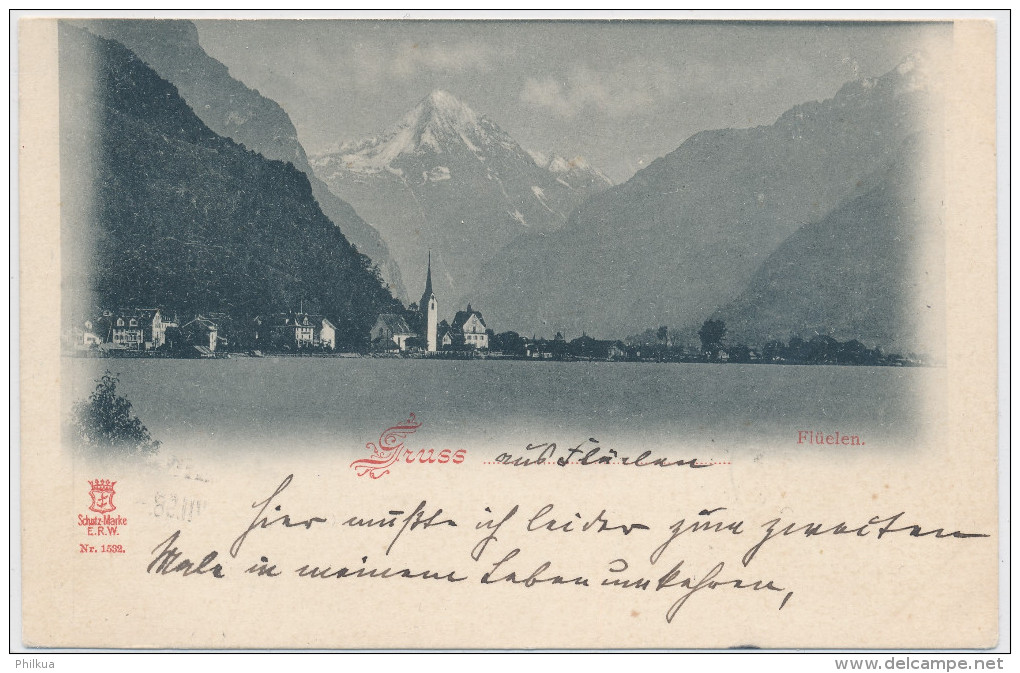 Flüelen.
Gruss aus Flüelen
Schutz-Marke
E.R.W.
Nr. 1532.
hier mußte ich leider zum zweiten
Male in meinem Leben umkehren,
Philkua
www.delcampe.net